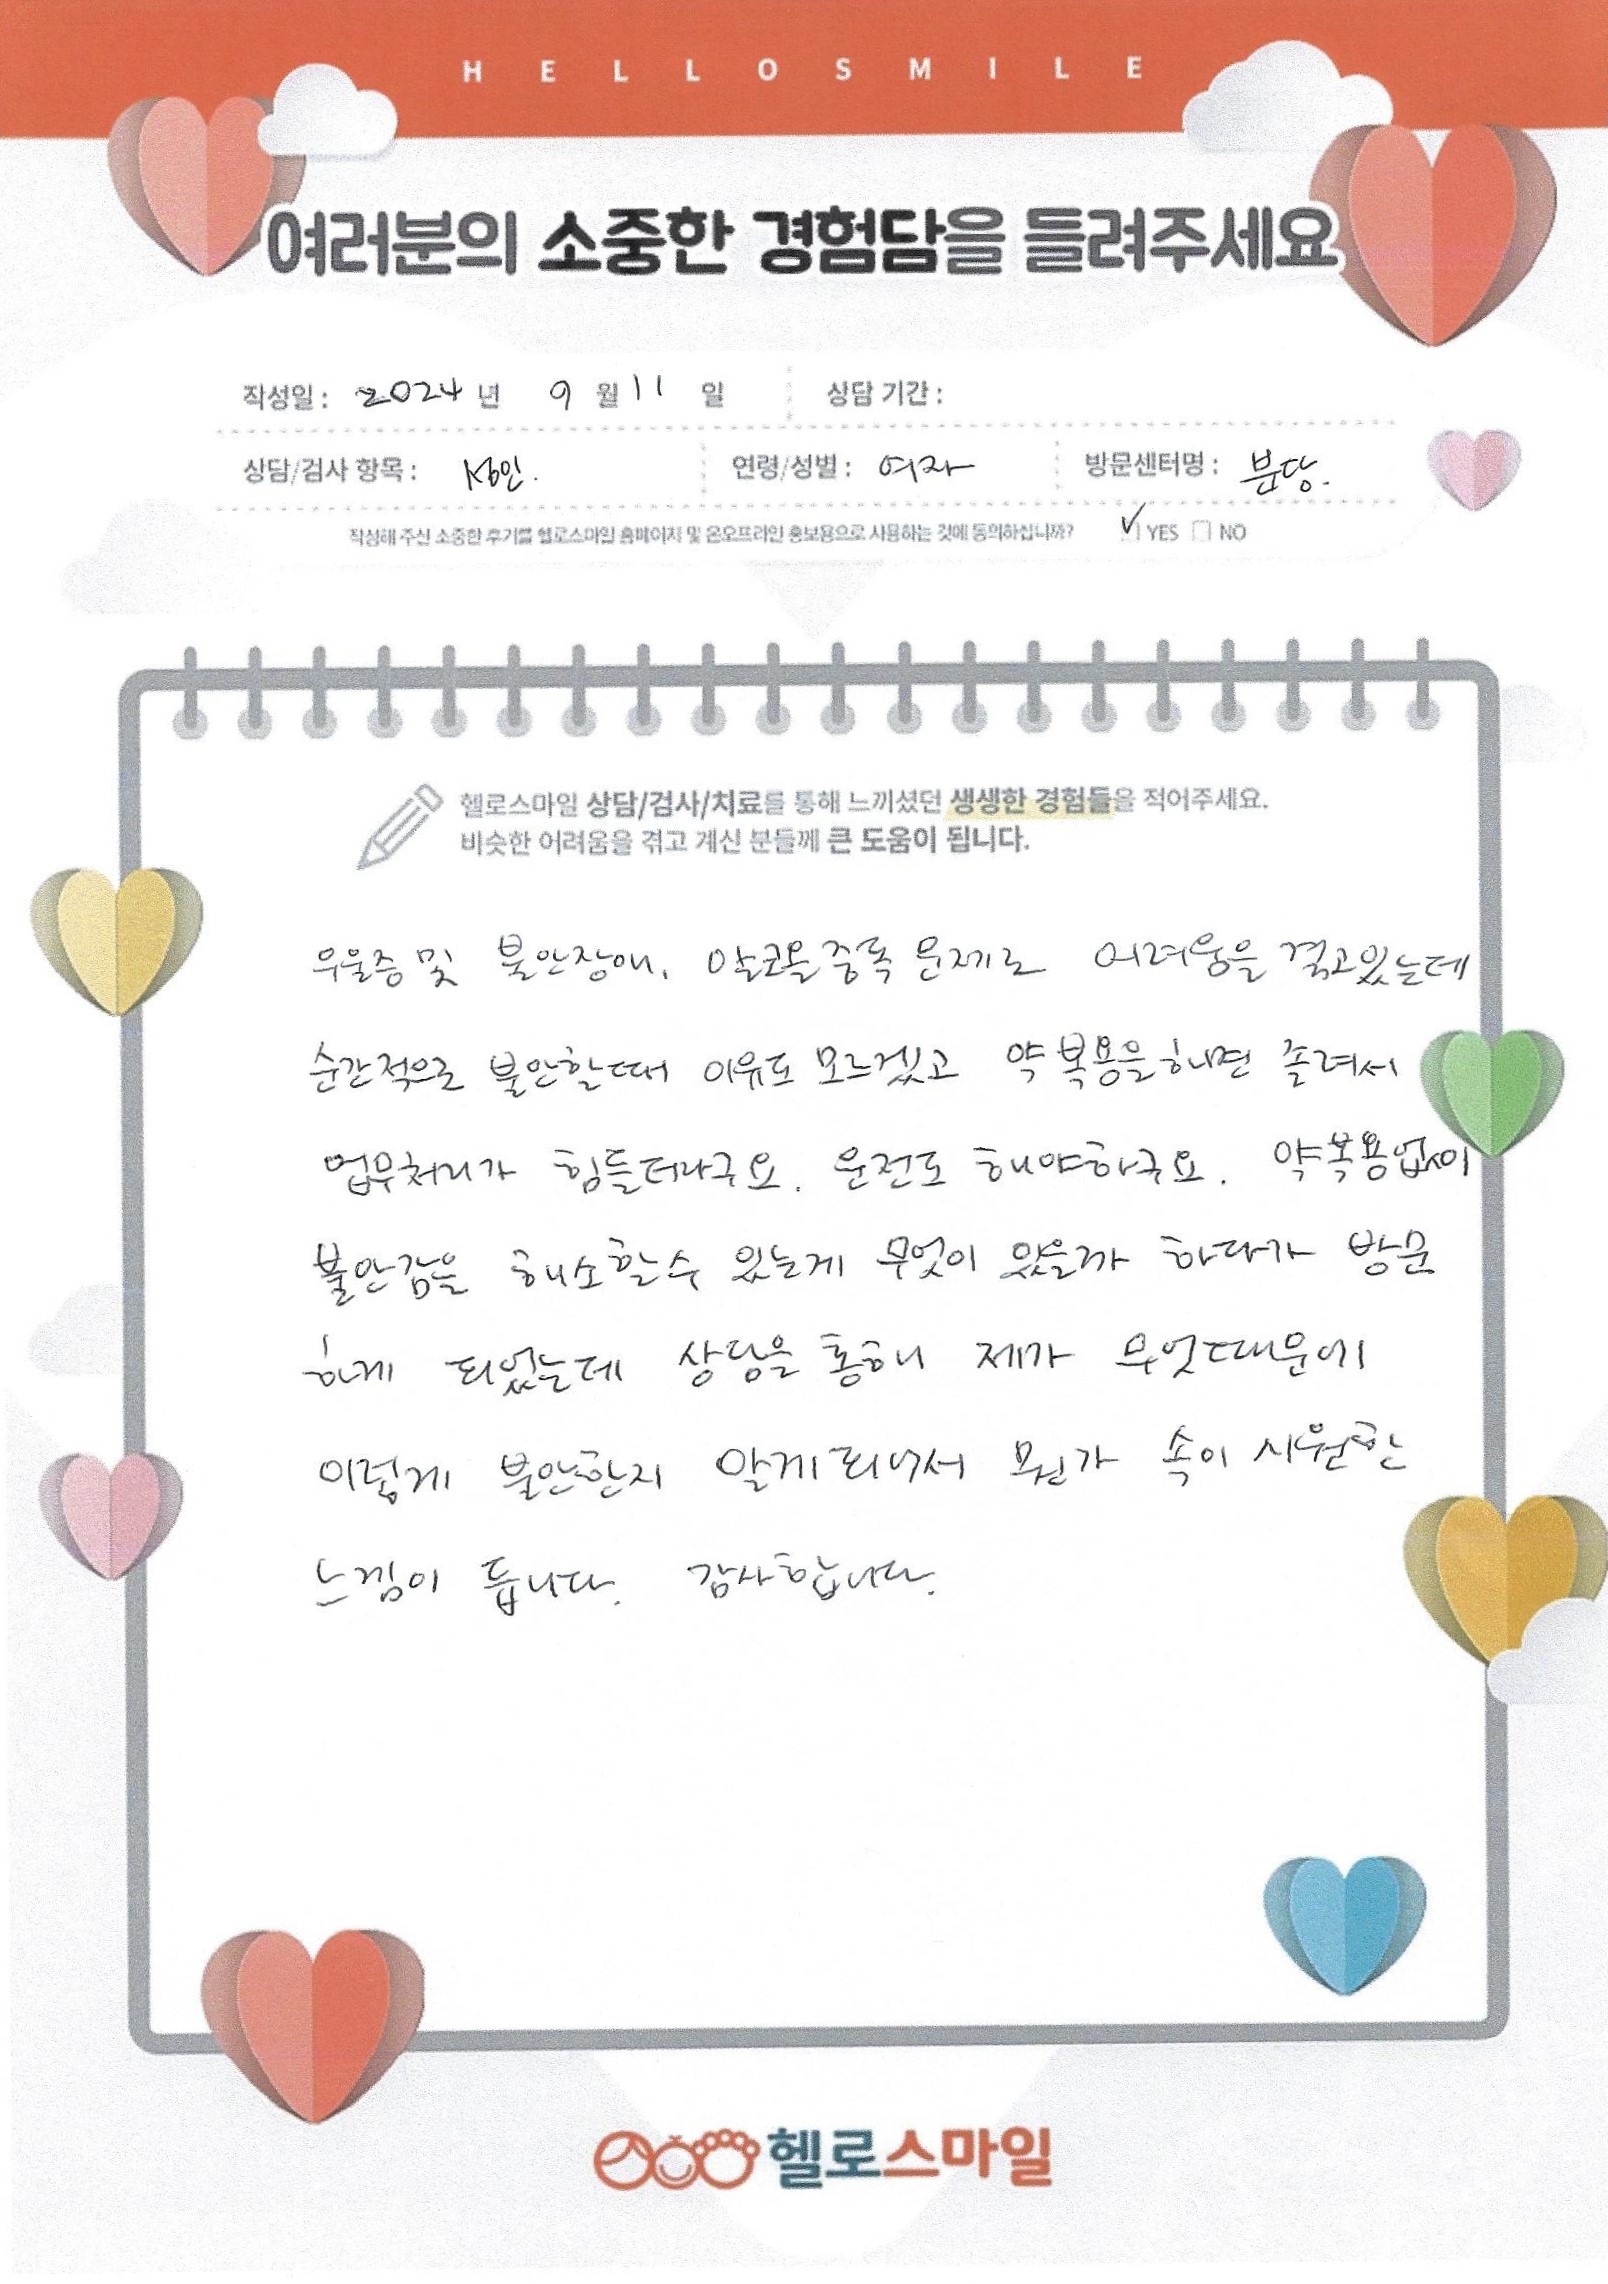 HELLOSMILE
여러분의 소중한 경험담을 들려주세요
작성일 : 2024 년 9 월 11 일 상담 기간 :
상담/검사 항목 : 성인. 연령/성별 : 여자 방문센터명 : 분당.
작성해 주신 소중한 후기를 헬로스마일 홈페이지 및 온오프라인 홍보용으로 사용하는 것에 동의하십니까? YES NO
헬로스마일 상담/검사/치료를 통해 느끼셨던 생생한 경험들을 적어주세요.
비슷한 어려움을 겪고 계신 분들께 큰 도움이 됩니다.
우울증 및 불안장애, 알코올중독 문제로 어려움을 겪고있는데
순간적으로 불안할때 이유도 모르겠고 약 복용을하면 졸려서
업무처리가 힘들더라구요. 운전도 해야하구요. 약복용없이
불안감을 해소할수 있는게 무엇이 있을까 하다가 방문
하게 되었는데 상담을 통해 제가 무엇때문에
이렇게 불안한지 알게되어서 뭔가 속이 시원한
느낌이 듭니다. 감사합니다.
헬로스마일